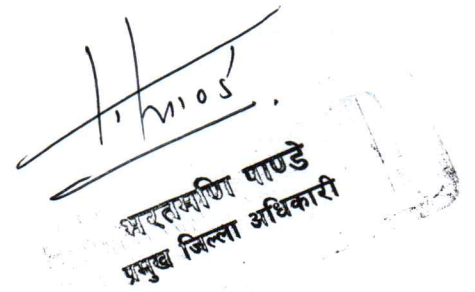 भरतमणि पाण्डे
प्रमुख जिल्ला अधिकारी